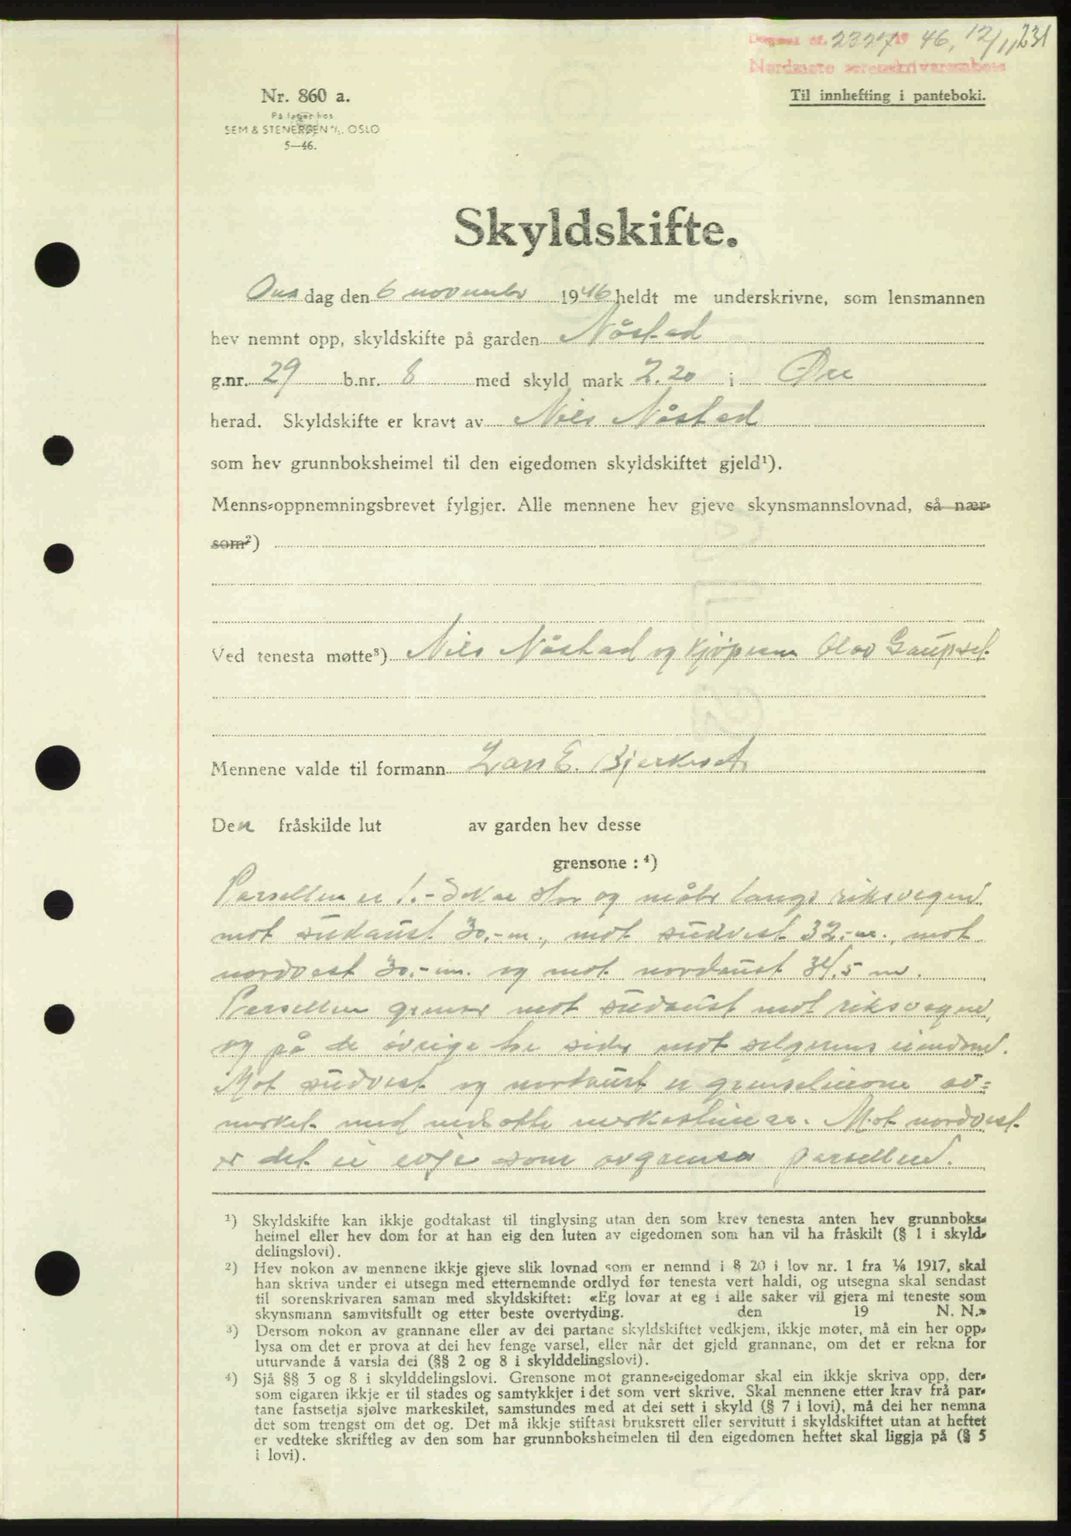 Dagbok nr. 2327 1946, 12/11 231
Nordmøre sorenskrivarembete
Nr. 860 a.
På lager hos
SEM & STENERSEN A/S, OSLO
5—46.
Til innhefting i panteboki.
Skyldskifte.
Onsdag den 6 november 1946 heldt me underskrivne, som lensmannen
hev nemnt opp, skyldskifte på garden Nåstad
g.nr. 29 b.nr. 8 med skyld mark 2.20 i Øre
herad. Skyldskifte er kravt av Nils Nåstad
som hev grunnboksheimel til den eigedomen skyldskiftet gjeld¹).
Menns-oppnemningsbrevet fylgjer. Alle mennene hev gjeve skynsmannslovnad, så nær-
som²)
Ved tenesta møtte³) Nils Nåstad og kjøperen Olav Gaupset.
Mennene valde til formann Lars E. Bjerkeset
Den fråskilde lut av garden hev desse
grensone : ⁴)
Parsellen er 1.- dekar stor og måler langs riksvegen
mot sudaust 30.-m., mot sudvest 32.-m., mot
nordvest 30.-m. og mot nordaust 34,5 m.
Parsellen grenser mot sudaust mot riksvegen,
og på de øvrige tre sider mot selgerens eiendom.
Mot sudvest og nordaust er grenselineone av=
merket med nedsatte merkesteiner. Mot nordvest
er det ei evje som avgrensa parsellen.
¹) Skyldskifte kan ikkje godtakast til tinglysing utan den som krev tenesta anten hev grunnboks-
heimel eller hev dom for at han eig den luten av eigedomen som han vil ha fråskilt (§ 1 i skyld-
delingslovi).
²) Hev nokon av mennene ikkje gjeve slik lovnad som er nemnd i § 20 i lov nr. 1 fra 1/6 1917, skal
han skriva under ei utsegn med etternemnde ordlyd før tenesta vert haldi, og utsegna skal sendast
til sorenskrivaren saman med skyldskiftet: «Eg lovar at eg i alle saker vil gjera mi teneste som
skynsmann samvitsfullt og etter beste overtyding. den 19 N. N.»
³) Dersom nokon av grannane eller av dei partane skyldskiftet vedkjem, ikkje møter, må ein her opp-
lysa om det er prova at dei hev fenge varsel, eller når det gjeld grannane, om det er rekna for
uturvande å varsla dei (§§ 2 og 8 i skylddelingslovi).
⁴) Sjå §§ 3 og 8 i skylddelingslovi. Grensone mot granne-eigedomar skal ein ikkje skriva opp, der-
som eigaren ikkje er til stades og samtykkjer i det som vert skrive. Skal mennene etter krav frå par-
tane fastsetja sjølve markeskilet, samstundes med at dei sett i skyld (§ 7 i lovi), må dei her nemna
det som trengst om det og. Det må ikkje stiftast bruksrett eller servitutt i skyldskiftet utan at heftet
er vedteke skriftleg av den som har grunnboksheimelen til den eigedomen heftet skal liggja på (§ 5
i lovi).